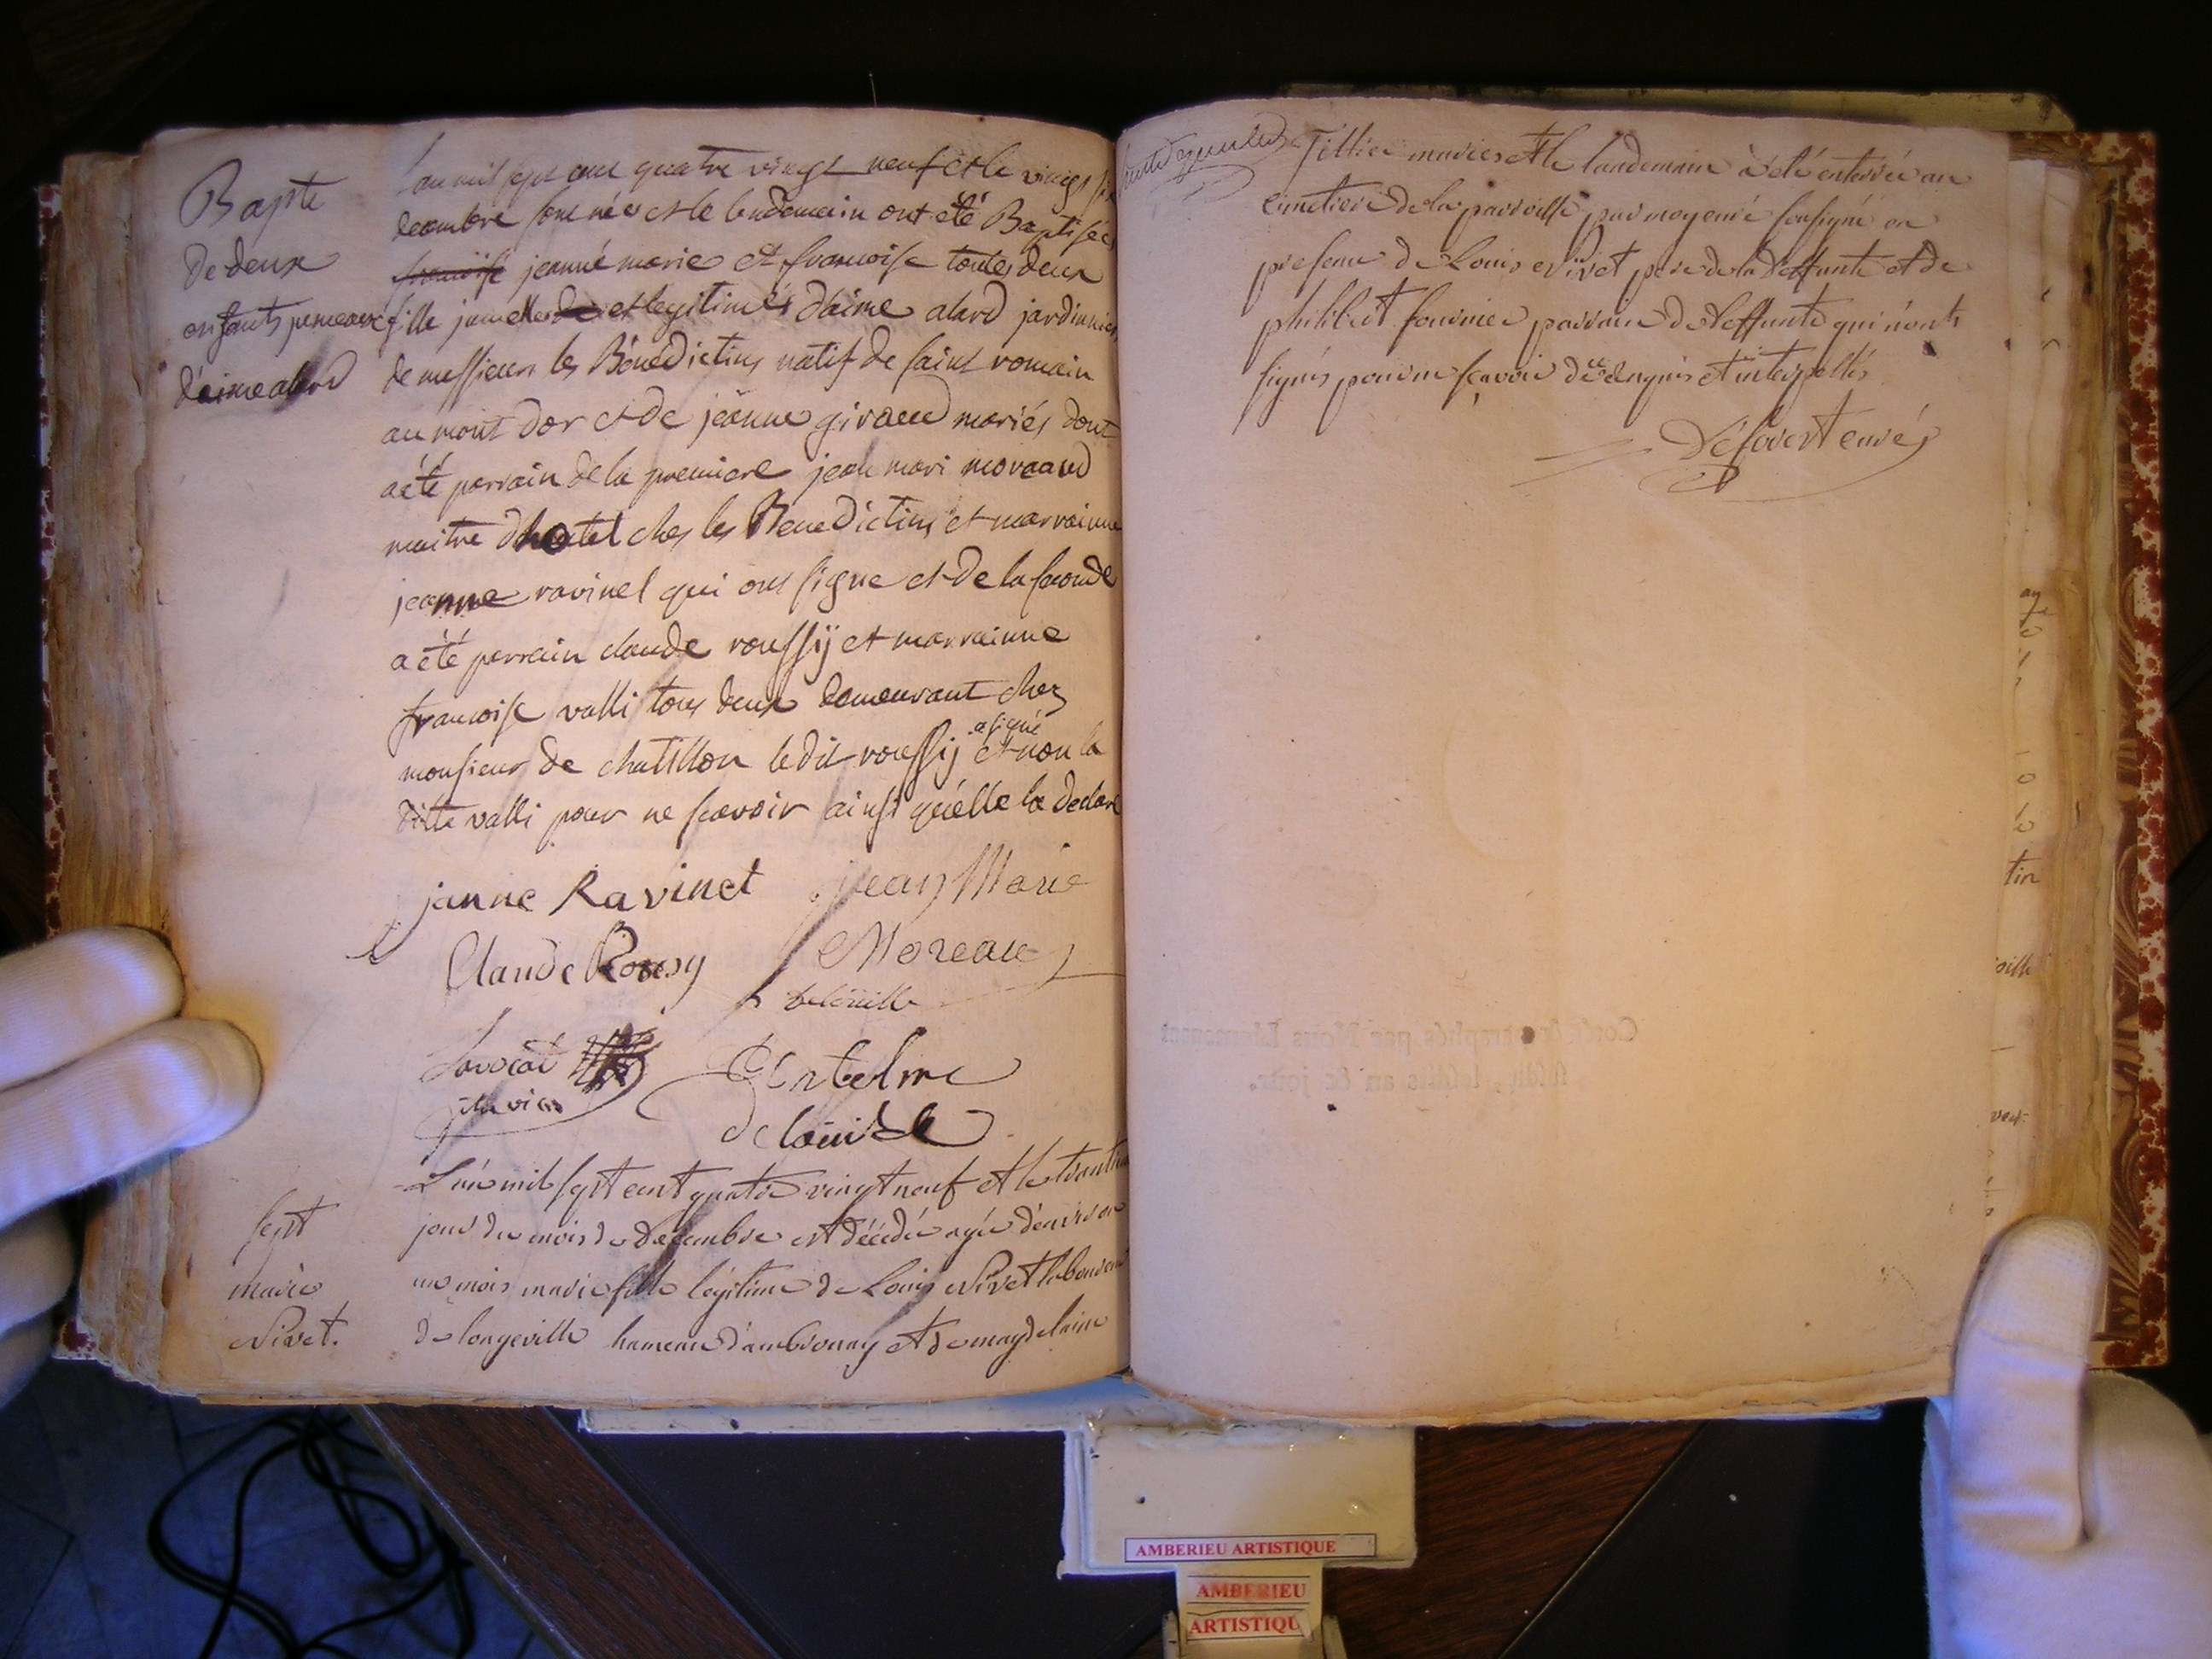 Bapte
De deux
enfants jumeaux
d'aime alard
L'an mil sept cent quatre vingt neuf et le vingt
decembre sont nées et le lendemain ont été Baptisées
francoise jeanne marie et francoise toutes deux
fille jumelles de et legitimes d'aime alard jardinnier
de messieurs les Bénédictins natif de saint romain
au mont dor et de jeanne giraud mariés dont
a été parrain de la premiere jean mari moraaud
maitre dhotel ches les Benedictins et marrainne
jeanne ravinel qui ont signe et de la seconde
a été parrain claude roussij et marrainne
francoise valli tous deux demeurant chez
a signé
monsieur de chatillon ledit roussij et non la
ditte valli pour ne scavoir ainsi quélle la declaré
janne Ravinet jean Marie
Claude Rousy Moreau
delouille
Savocat
Antelme
delouille
Sept
marie
Nivet.
L'an mil sept cent quatre vingt neuf et le trantieme
jour du mois de decembre est décédée agée d'environ
un mois marie fille légitime de Louis Nivet laboureur
de longeville hameau d'ambronay et de magdelaine
Tillier mariés et le landemain à été enterrée au
cimetiere de la parroisse par moy curé soussigné en
presence de Louis Nivet pere de la deffunte et de
philibert fournier parrain de deffunte qui n'onts
signés pour ne sçavoir de ce enquis et interpellés
Désovert curé
AMBERIEU ARTISTIQUE
AMBERIEU
ARTISTIQU